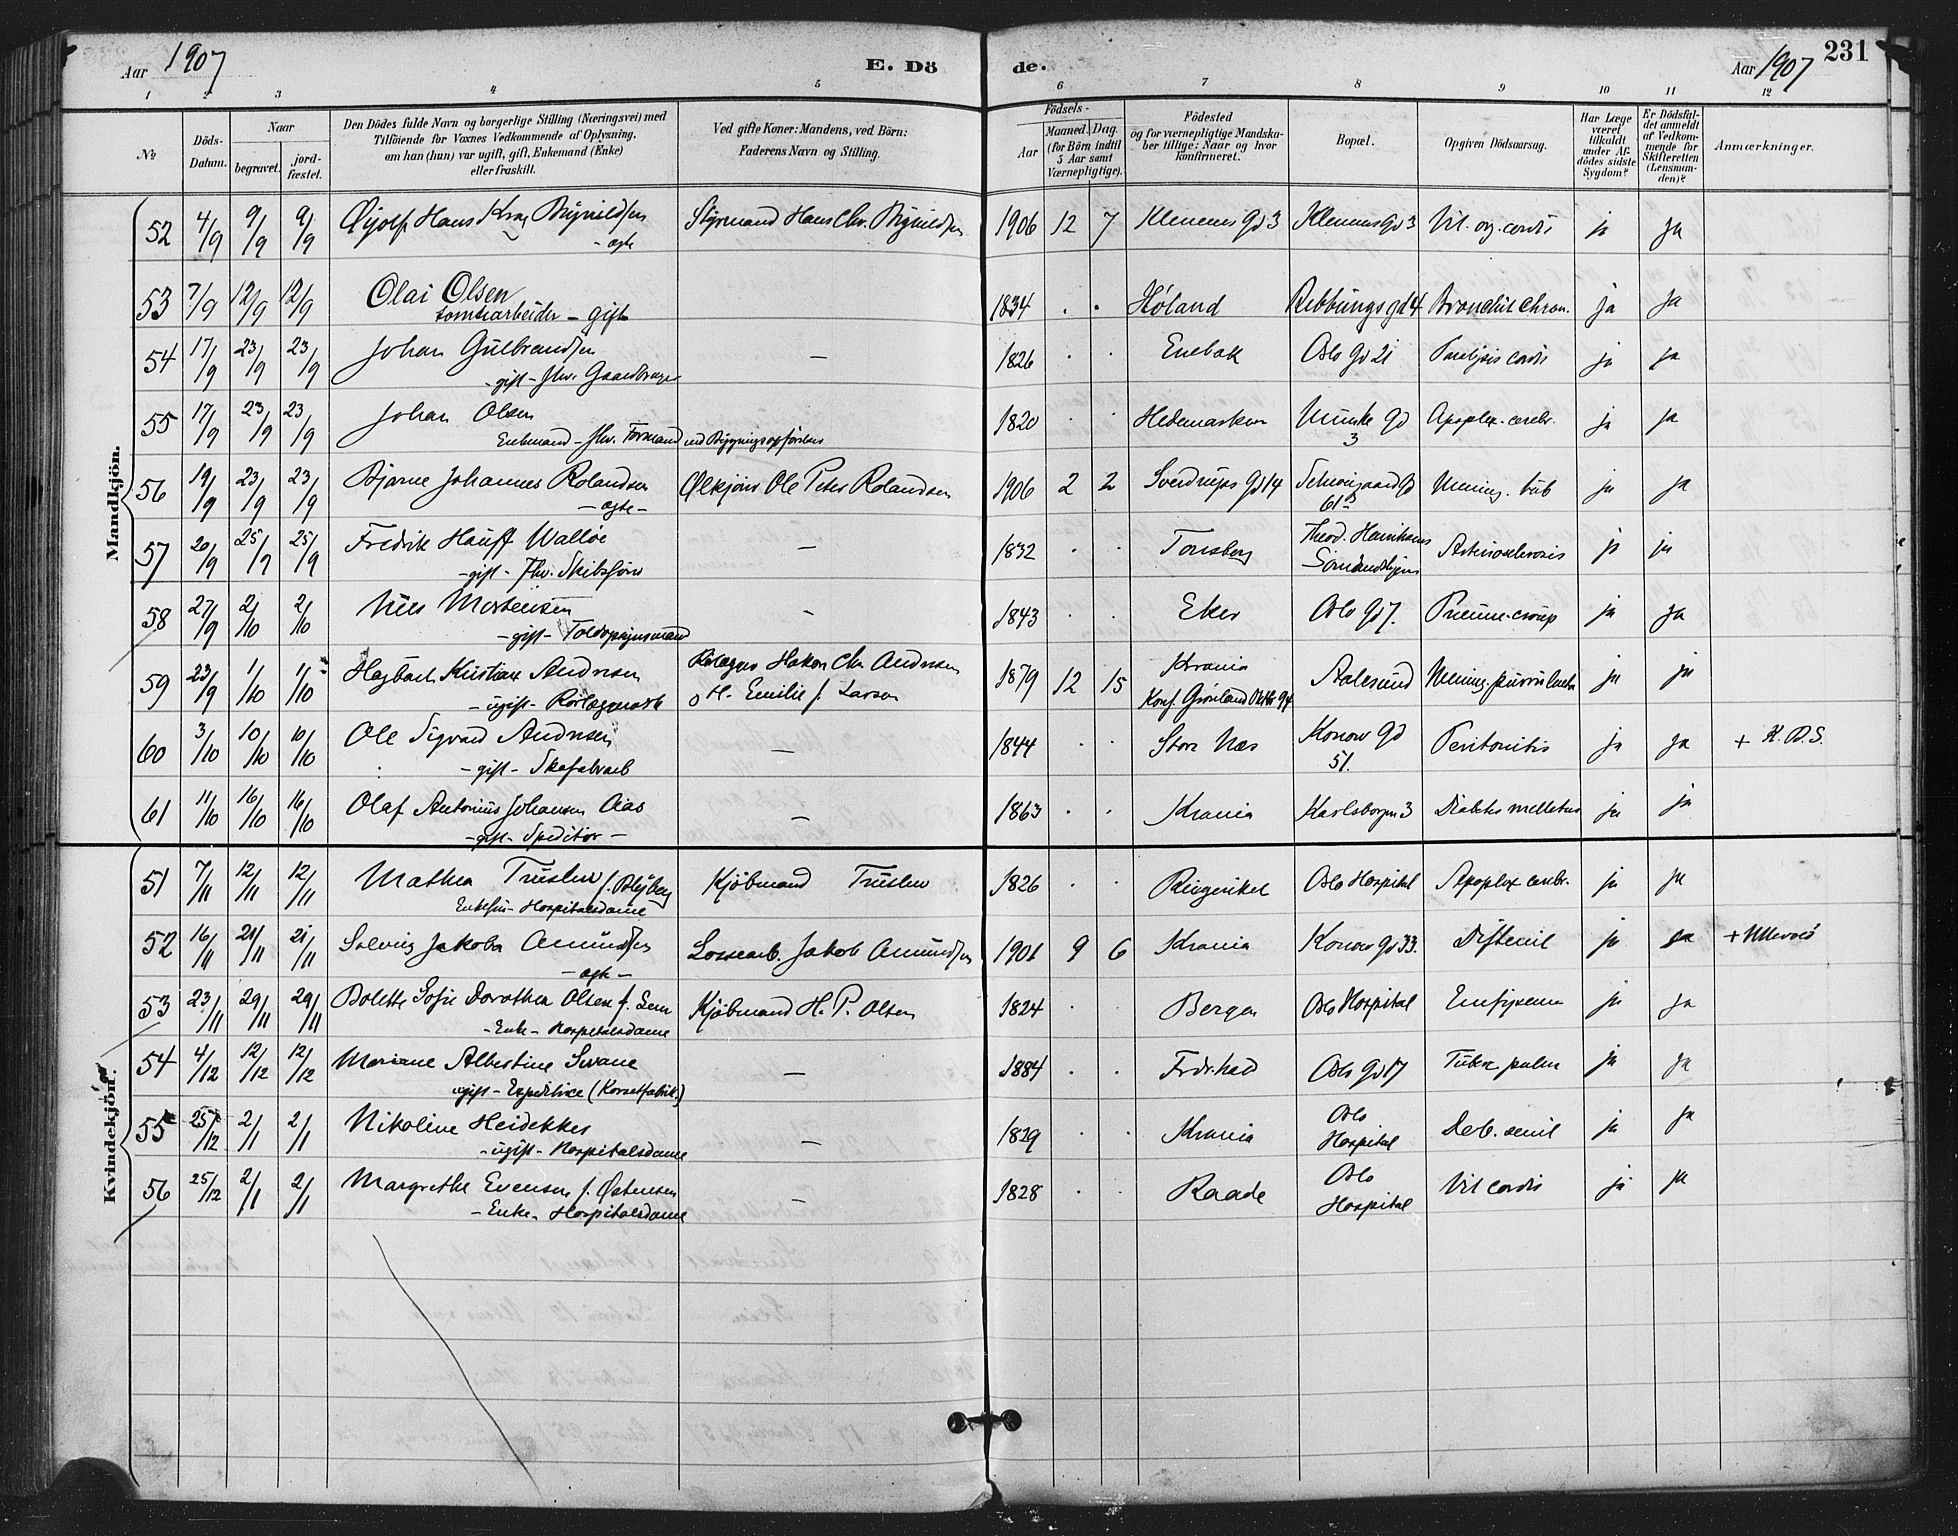 Aar 1907 E. Dö de. Aar 1907 231
1 2 3 4 5 6 7 8 9 10 11 12
№
Döds-Datum.
Naar
begravet.
jord-fæstet.
Den Dödes fulde Navn og borgerlige Stilling (Næringsvei) med
Tilföiende for Voxnes Vedkommende af Oplysning,
om han (hun) var ugift, gift, Enkemand (Enke)
eller fraskilt.
Ved gifte Koner: Mandens, ved Börn:
Faderens Navn og Stilling.
Födsels-
Aar
Maaned. Dag.
(for Börn indtil
5 Aar samt
Værnepligtige).
Födested
og for værnepligtige Mandska-
ber tillige: Naar og hvor
konfirmeret.
Bopæl.
Opgiven Dödsaarsag.
Har Læge
været
tilkaldt
under Af-
dödes sidste
Sygdom?
Er Dödsfal-
det anmeldt
af Vedkom-
mende for
Skifteretten
(Lensman-
den)?
Anmærkninger.
Mandkjön.
52 4/9 9/9 9/9 Hans Brynildsen Styrmand Hans Chr. Brynildsen 1906 12 7 Klemens Gd 3 Klemens Gd 3 Vit. org. cordis ja ja
- ægte
53 7/9 12/9 12/9 Olai Olsen 1834 . . Høland Ribbungs gd 4 Bronchit chron. ja ja
Tomtearbeider - gift
54 17/9 23/9 23/9 Johan Gulbrandsen — 1826 . . Enebak Oslo Gd 21 Paralysis cordis ja ja
- gift - fhv.
55 17/9 23/9 23/9 Johan Olsen 1820 . . Hedemarken Munke Gd 3 Apoplex. cerebr. ja ja
Enkemand - fhv. Formand ved Bygningsopförelse
56 19/9 23/9 23/9 Bjarne Johannes Rolandsen Ølkjörer Ole Peter Rolandsen 1906 2 2 Sverdrups Gd 14 Schweigaard Gd 61 Mening. tub ja ja
- ægte -
57 20/9 25/9 25/9 Fredrik Hauff Walløe — 1832 . . Tønsberg Theod. Sömandshjem Arteriosclerosis ja ja
- gift - fhv. Skibsförer
58 27/9 2/10 2/10 Nils Mortensen - 1843 . . Eker Oslo Gd 7. Pneum. croup ja ja
- gift - Toldopsynsmand
59 23/9 1/10 1/10 Hagbart Kristian Andresen Rörlægger Hakon Chr Andresen 1879 12 15 Krania Aalesund Mening. ja ja
- ugift - o H. Emilie f. Larsen Konf. Grönland
60 3/10 10/10 10/10 Ole Sigvard Andresen — 1844 Stor Næs Konow Gd 51. Peritonitis ja ja + K. D. S.
- gift -
61 11/10 16/10 16/10 Olaf Antonius Johansen Aas — 1863 . . Krania Karlsborgvn 3 Diabetes mellitus ja ja
- gift - Speditör -
Kvindekjön.
51 7/11 12/11 12/11 Mathea Truslew f. Blyberg Kjöbmand Truslew 1826 . . Ringerike Oslo Hospital Apoplex cerebr. ja ja
- Hospitalsdame
52 16/11 21/11 21/11 Solveig Jakoba Amundsen Lossearb. Jakob Amundsen 1901 9 6 Krania Konow Gd 33. Difterit ja ja + Ullevold
- ægte -
53 23/11 29/11 29/11 Bolette Sofie Dorothea Olsen f. Kjöbmand H. P. Olsen 1824 . . Bergen Oslo Hospital Emfysem ja ja
- Enke - Hospitalsdame
54 4/12 12/12 12/12 Mariane Albertine Svane — 1884 . . Frdrhald Oslo Gd 17 Tuberc. pulm ja ja
ugift - Expeditrice (Korsetfabrik.)
55 25/12 2/1 2/1 Nikoline Heidekker — 1829 . . Krania Oslo Hospital Deb. senil ja ja
- ugift - Hospitalsdame
56 25/12 2/1 2/1 Margrethe Evensen f. Østensen — 1828 . . Raade Oslo Hospital Vit cordis ja ja
- Enke - Hospitalsdame